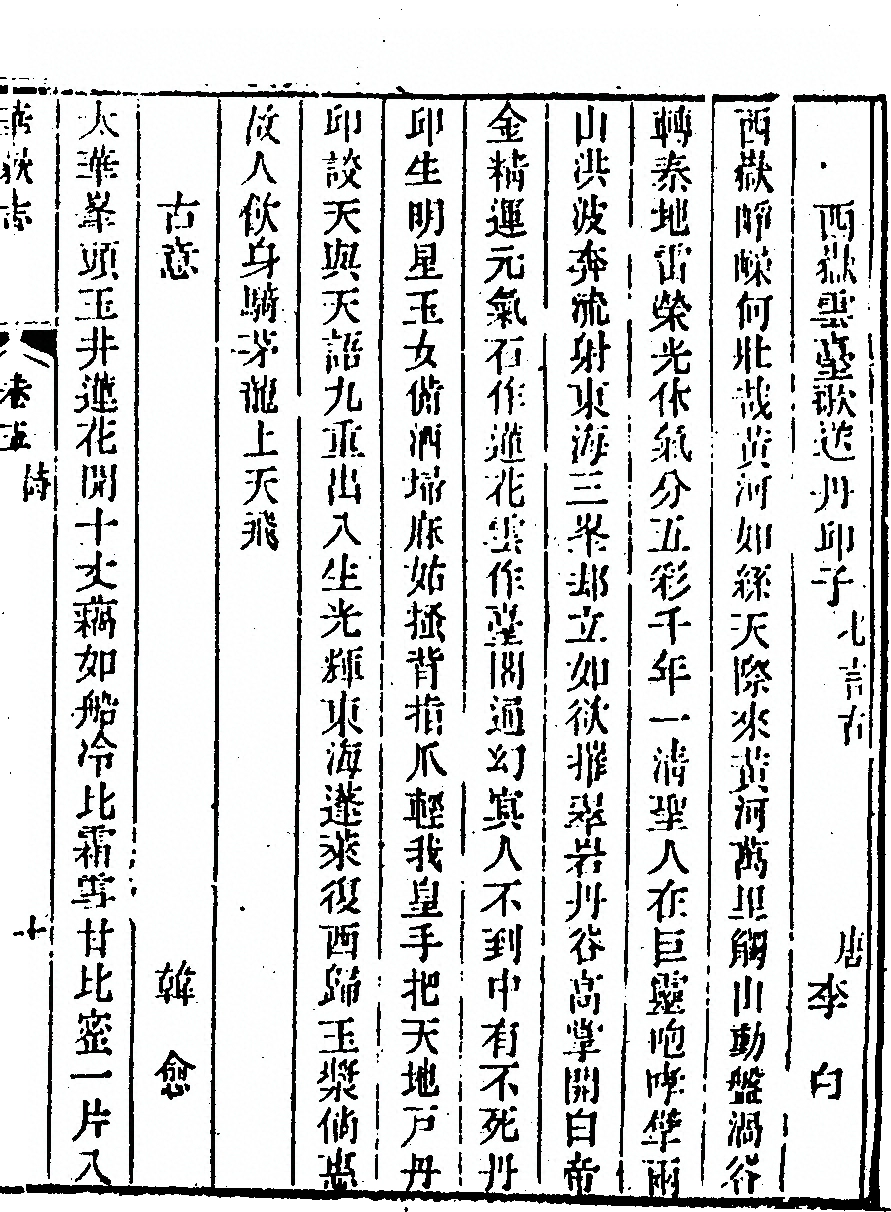 西嶽雲臺歌送丹邱子 七言古 唐 李白
西嶽崢嶸何壯哉黃河如絲天際來黃河萬里觸山動盤渦谷
轉秦地雷榮光休氣紛五彩千年一清聖人在巨靈咆哮擘兩
山洪波奔流射東海三峯却立如欲摧翠岩丹谷高掌開白帝
金精運元氣石作蓮花雲作臺閣道幻冥人不到中有不死丹
邱生明星玉女備酒埽麻姑搔背指爪輕我皇手把天地戶丹
邱談天與天語九重出入生光輝東海蓬萊復西歸玉漿倘惠
故人飲身騎茅龍上天飛
古意 韓愈
太華峯頭玉井蓮花開十丈藕如船冷比霜雪甘比蜜一片入
華嶽志 卷五 詩 十